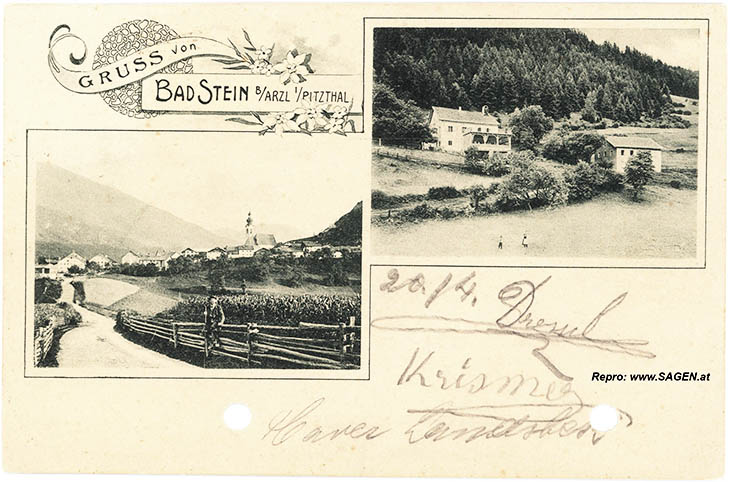 GRUSS von
BAD STEIN B/ARZL I/PITZTHAL
20./4.
Krismer
Repro: www.SAGEN.at